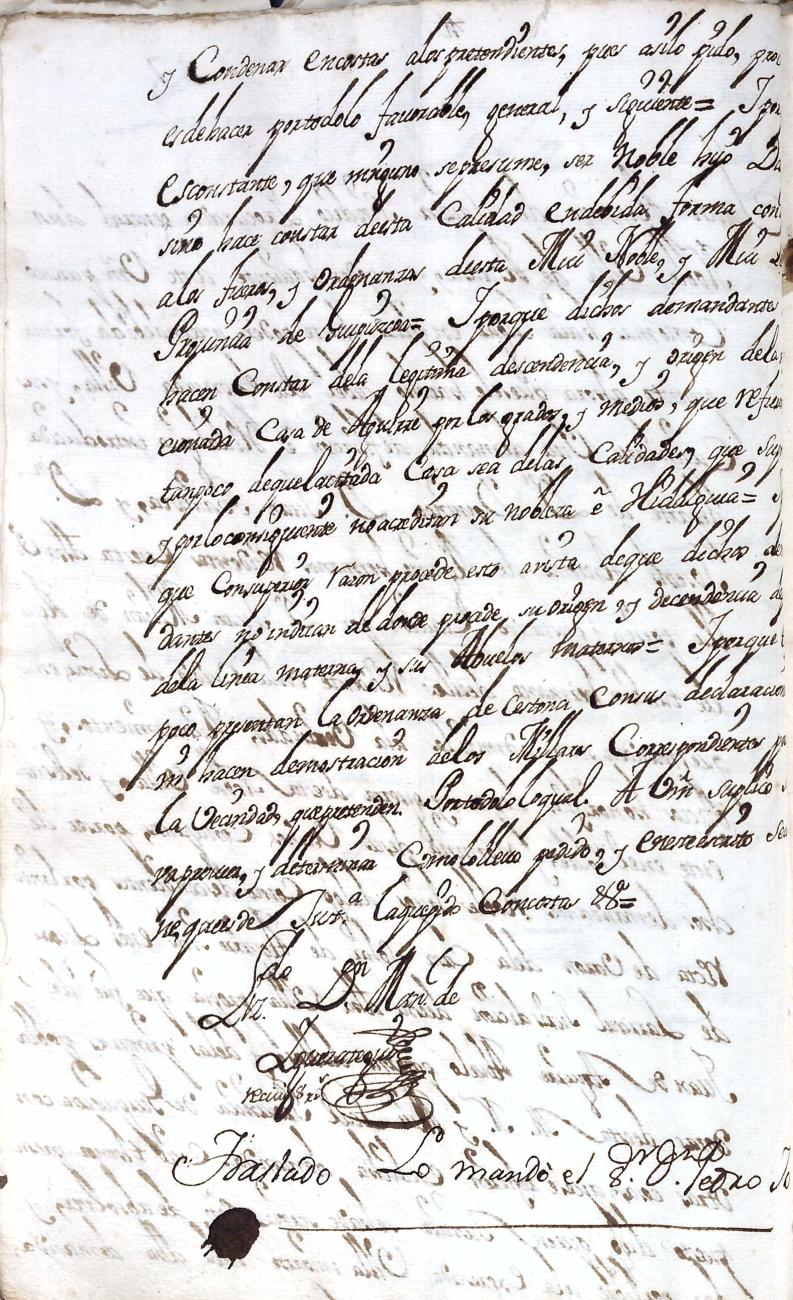 y Condenar en costas alos pretendientes, pues asilo pido, pro
es de hacer portodolo favorable, general, y siguiente= I por
es constante, que ninguno se presume, ser Noble hijo Da
sino hace constar desta Calidad en debida forma con
alos fueros, y ordenanzas desta Mui Noble, y Mui L
Provincia de Guipuzcoa= I porque dichos demandantes
hacen Constar dela legitima descendencia, y origen delas
cionada Casa de Aguirre por los grados, y medios, que refie
tanpoco deque lacitada Casa sea delas Calidades, que sup
y por lo consiguiente no acreditan su nobleza ê Hidalguia=
que Consuperior razon procede esto avista deque dichos de
dantes no indican de donde procede su origen, y decendencia
dela linea materna, y sus Abuelos maternos= I porque
poco presentan la ordenanza de Cestona Consus declaracion
ni hacen demostracion delos Millares Correspondientes p
la Vecindad, que pretenden. Portodolo qual. A Vm suplico
va proveer, y determinar Comolollevo pedido, y eneste escrito se
ne, que es de Just.ª laque pido Concostas &ª=
Liz.do Dn Man.l de
Traslado Lo mando el S.r D.n Pedro